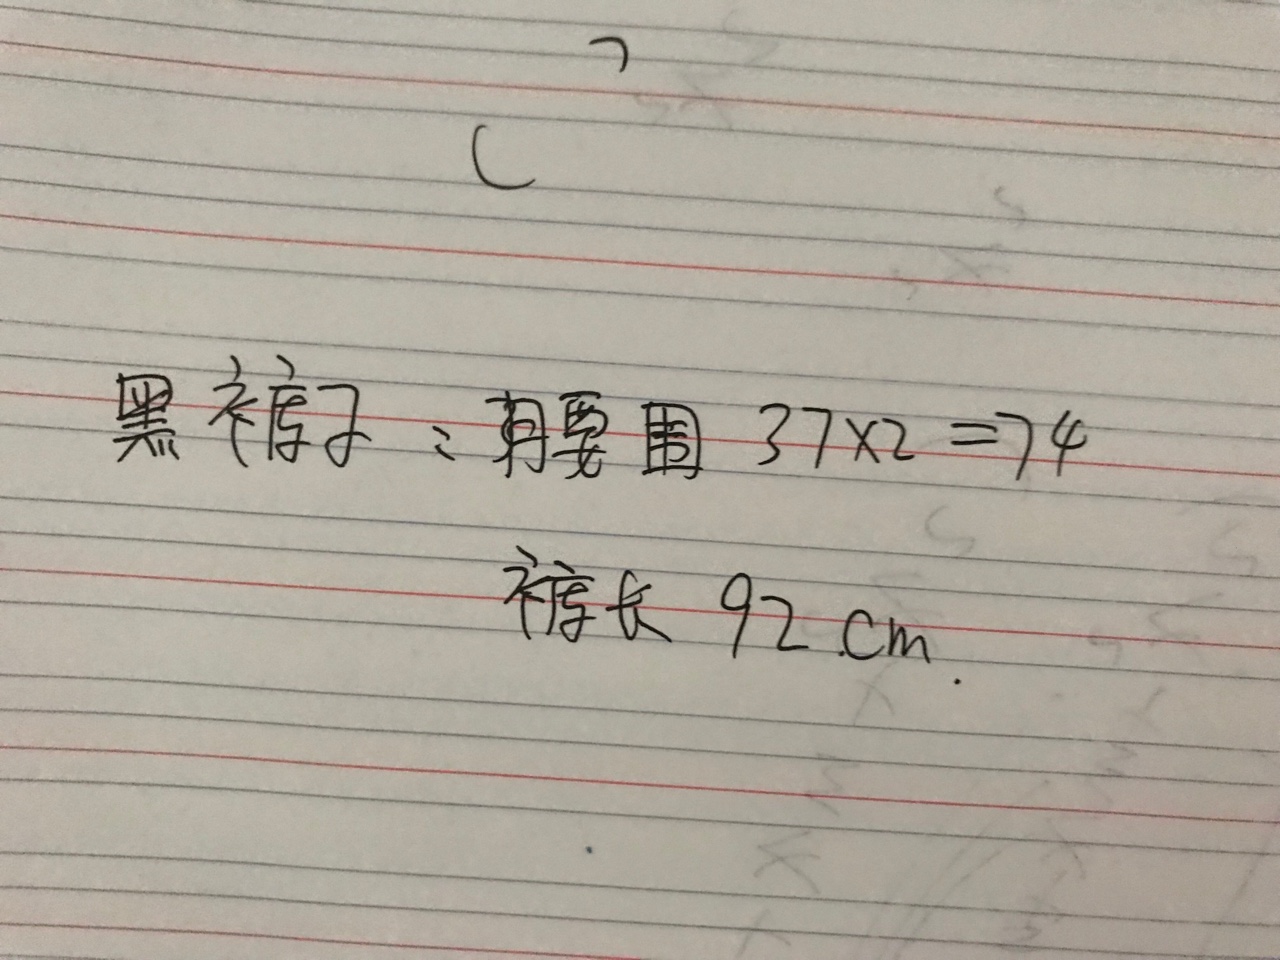 黑裤子：腰围 37×2=74
裤长 92cm.